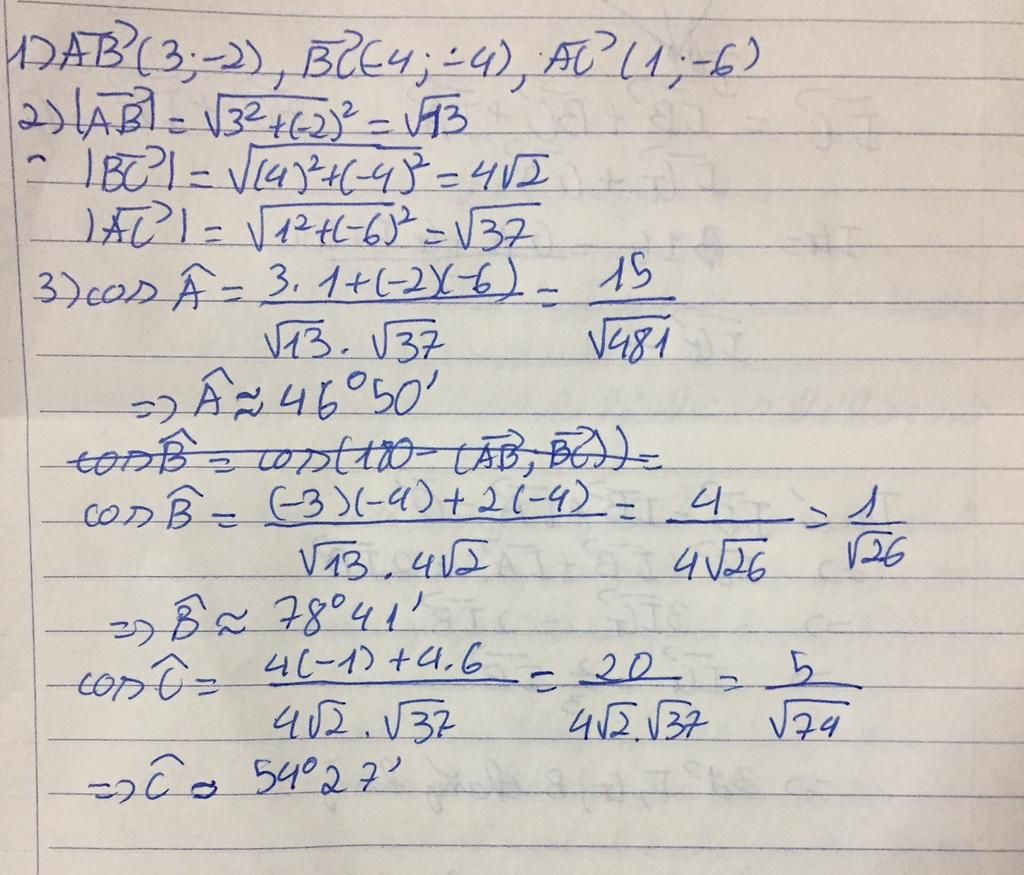 1) AB→(3;-2), BC→(-4;-4), AC→(1;-6)
2) |AB→| = √(3²+(-2)²) = √13
|BC→| = √((4)²+(-4)²) = 4√2
|AC→| = √(1²+(-6)²) = √37
3) cos Â = (3.1+(-2)(-6))/(√13.√37) = 15/√481
=> Â ≈ 46°50'
cos B̂ = cos(180-(AB→, BC→)) =
cos B̂ = ((-3)(-4)+2(-4))/(√13.4√2) = 4/(4√26) = 1/√26
=> B̂ ≈ 78°41'
cos Ĉ = (4(-1)+4.6)/(4√2.√37) = 20/(4√2.√37) = 5/√74
=> Ĉ ≈ 54°27'